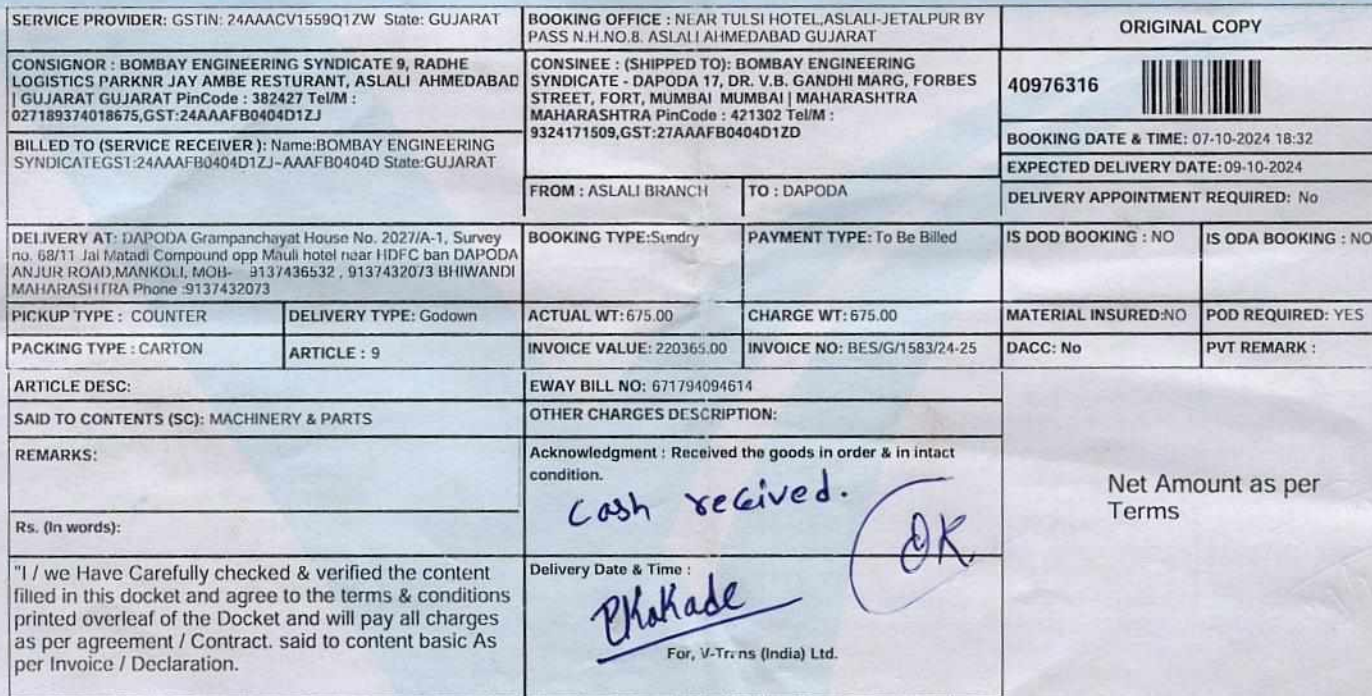 SERVICE PROVIDER: GSTIN: 24AAACV1559Q1ZW State: GUJARAT
BOOKING OFFICE : NEAR TULSI HOTEL,ASLALI-JETALPUR BY
PASS N.H.NO.8. ASLALI AHMEDABAD GUJARAT
ORIGINAL COPY
CONSIGNOR : BOMBAY ENGINEERING SYNDICATE 9, RADHE
LOGISTICS PARKNR JAY AMBE RESTURANT, ASLALI AHMEDABAD
| GUJARAT GUJARAT PinCode : 382427 Tel/M :
027189374018675,GST:24AAAFB0404D1ZJ
CONSINEE : (SHIPPED TO): BOMBAY ENGINEERING
SYNDICATE - DAPODA 17, DR. V.B. GANDHI MARG, FORBES
STREET, FORT, MUMBAI MUMBAI | MAHARASHTRA
MAHARASHTRA PinCode : 421302 Tel/M :
9324171509,GST:27AAAFB0404D1ZD
40976316
BILLED TO (SERVICE RECEIVER ): Name:BOMBAY ENGINEERING
SYNDICATEGST:24AAAFB0404D1ZJ~AAAFB0404D State:GUJARAT
BOOKING DATE & TIME: 07-10-2024 18:32
EXPECTED DELIVERY DATE:09-10-2024
FROM : ASLALI BRANCH
TO : DAPODA
DELIVERY APPOINTMENT REQUIRED: No
DELIVERY AT: DAPODA Grampanchayat House No. 2027/A-1, Survey
no. 68/11 Jai Matadi Compound opp Mauli hotel near HDFC ban DAPODA
ANJUR ROAD,MANKOLI, MOB- 9137436532 , 9137432073 BHIWANDI
MAHARASHTRA Phone :9137432073
BOOKING TYPE:Sundry
PAYMENT TYPE: To Be Billed
IS DOD BOOKING : NO
IS ODA BOOKING : NO
PICKUP TYPE : COUNTER
DELIVERY TYPE: Godown
ACTUAL WT:675.00
CHARGE WT: 675.00
MATERIAL INSURED:NO
POD REQUIRED: YES
PACKING TYPE : CARTON
ARTICLE : 9
INVOICE VALUE: 220365.00
INVOICE NO: BES/G/1583/24-25
DACC: No
PVT REMARK :
ARTICLE DESC:
EWAY BILL NO: 671794094614
SAID TO CONTENTS (SC): MACHINERY & PARTS
OTHER CHARGES DESCRIPTION:
REMARKS:
Acknowledgment : Received the goods in order & in intact
condition.
Cash received.
OK
Net Amount as per
Terms
Rs. (In words):
"I / we Have Carefully checked & verified the content
filled in this docket and agree to the terms & conditions
printed overleaf of the Docket and will pay all charges
as per agreement / Contract. said to content basic As
per Invoice / Declaration.
Delivery Date & Time :
PKakade
For, V-Trans (India) Ltd.